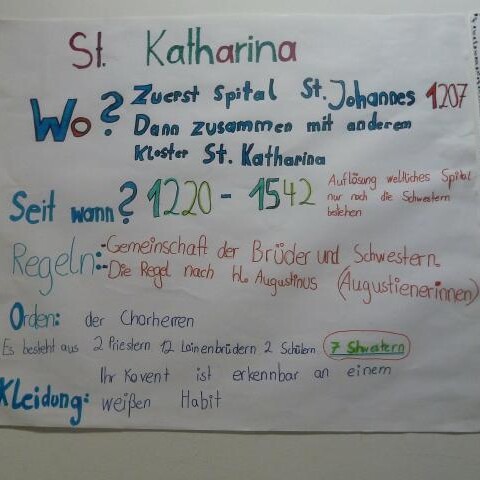 St. Katharina
Wo? Zuerst Spital St. Johannes 1207
Dann zusammen mit anderem
Kloster St. Katharina
Seit wann? 1220 - 1542 Auflösung weltliches Spital
nur noch die Schwestern
bestehen
Regeln: - Gemeinschaft der Brüder und Schwestern.
- Die Regel nach hl. Augustinus (Augustienerinnen)
Orden: der Chorherren
Es besteht aus 2 Priestern 12 Lainenbrüdern 2 Schülern 7 Shwestern
Ihr Kovent ist erkennbar an einem
Kleidung: weißen Habit